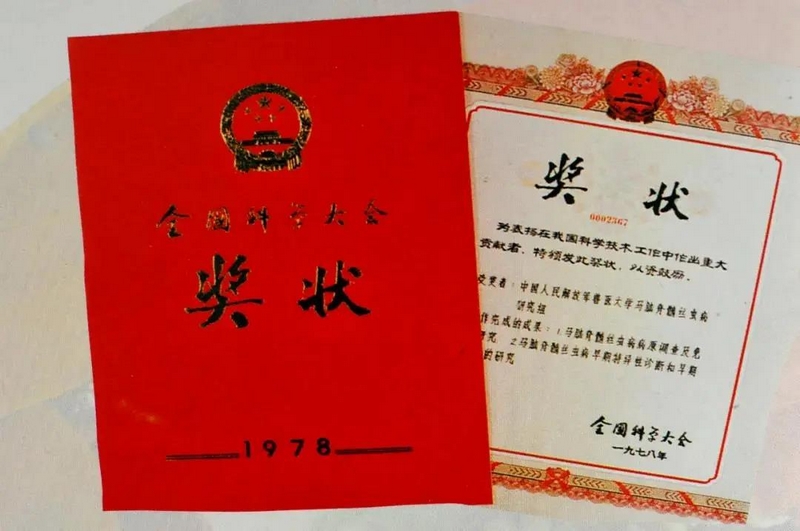 全国科学大会
奖状
1978
奖状
0002367
为表扬在我国科学技术工作中作出重大
贡献者，特颁发此奖状，以资鼓励。
受奖者：中国人民解放军兽医大学马脑脊髓丝虫病
研究组
作完成的成果：1.马脑脊髓丝虫病病原调查及免
研究 2.马脑脊髓丝虫病早期特异性诊断和早期
的研究
全国科学大会
一九七八年